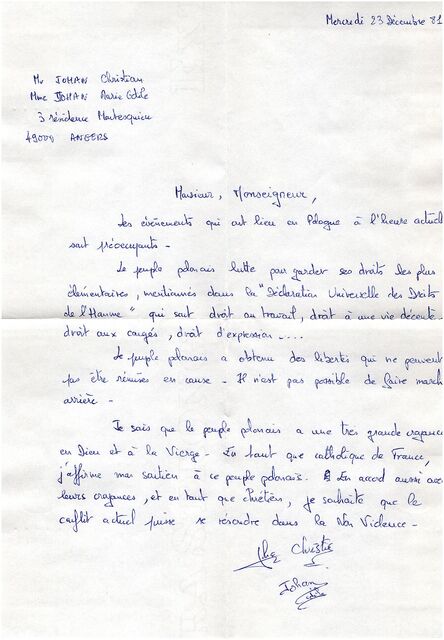 Mercredi 23 Décembre 81
Mr JOHAN Christian
Mme JOHAN Marie Odile
3 résidence Montesquieu
49000 ANGERS
Monsieur, Monseigneur,
Les évènements qui ont lieu en Pologne à l'heure actuel
sont préoccupants -
Le peuple polonais lutte pour garder ses droits les plus
élémentaires, mentionnés dans la "Déclaration Universelle des Droits
de l'Homme" qui sont droit au travail, droit à une vie décente
droit aux congés, droit d'expression ....
Le peuple polonais a obtenu des libertés qui ne peuvent
pas être remises en cause - Il n'est pas possible de faire march
arrière -
Je sais que le peuple polonais a une très grande croyance
en Dieu et à la Vierge - En tant que catholique de France,
j'affirme mon soutien à ce peuple polonais. En accord aussi avec
leurs croyances, et en tant que Chrétien, je souhaite que le
conflit actuel puisse se résoudre dans la Non Violence -
Johan